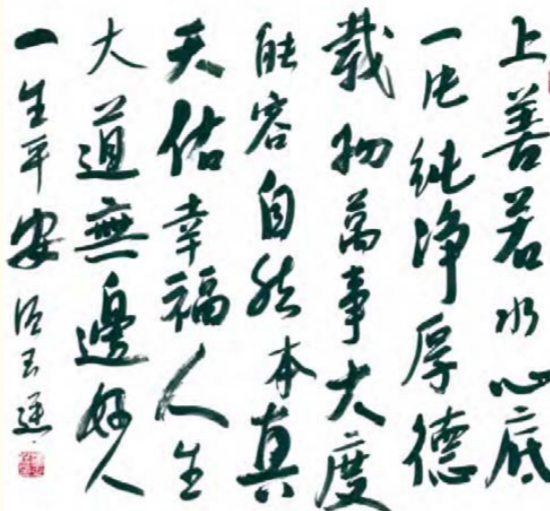 上善若水心底
一片纯净厚德
载物万事大度
能容自然本真
天佑幸福人生
大道無邊好人
一生平安